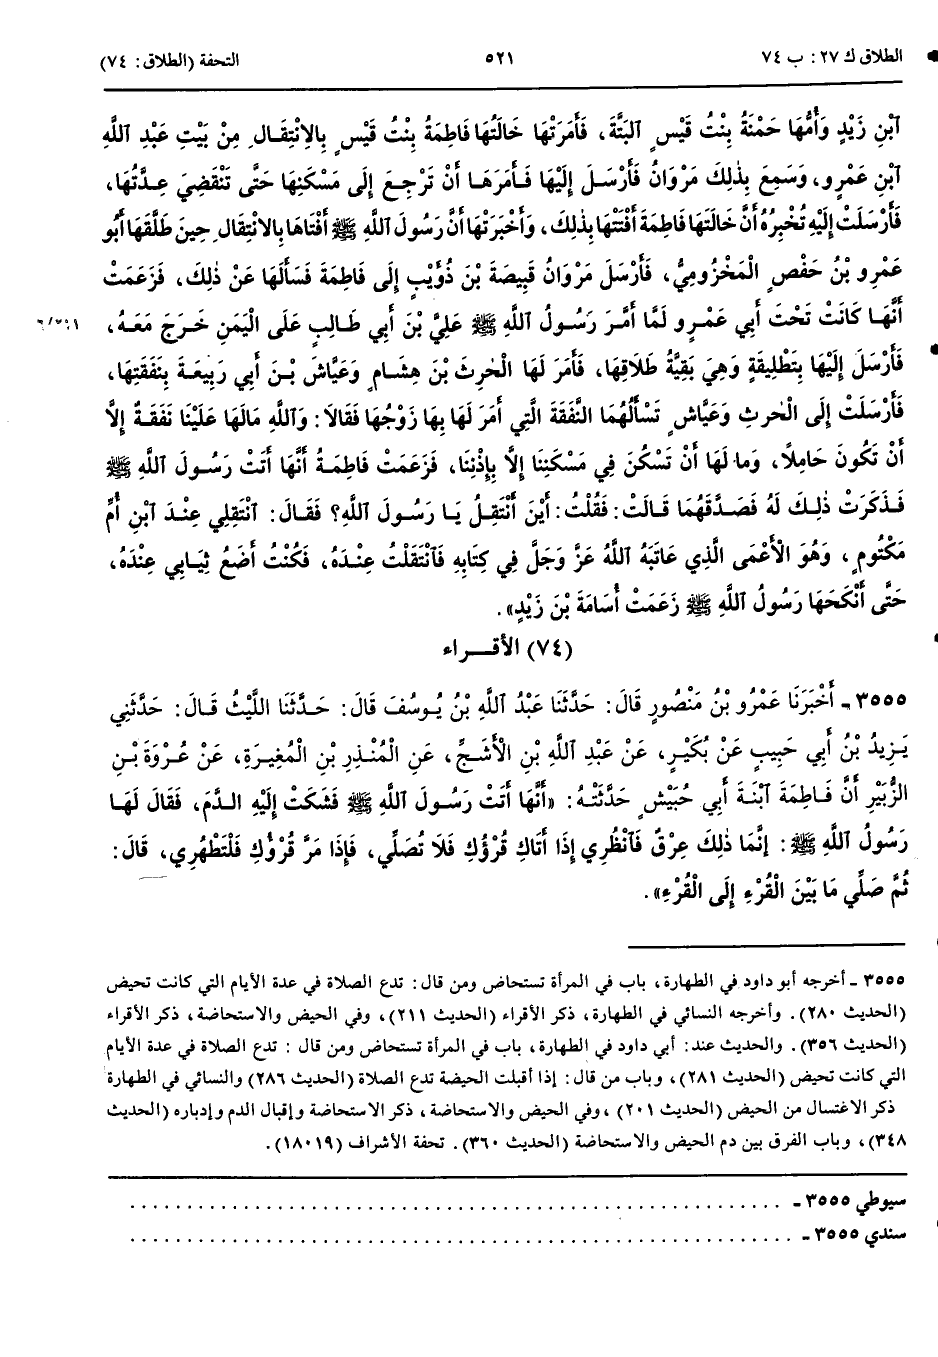 الطلاق ك ٢٧: ب ٧٤ ٥٢١ التحفة (الطلاق: ٧٤)
ٱبْنِ زَيْدٍ وَأُمُّهَا حَمْنَةُ بِنْتُ قَيْسٍ ٱلبَتَّةَ، فَأَمَرَتْهَا خَالَتُهَا فَاطِمَةُ بِنْتُ قَيْسٍ بِالِانْتِقَالِ مِنْ بَيْتِ عَبْدِ ٱللَّهِ
ٱبْنِ عَمْرٍو، وَسَمِعَ بِذٰلِكَ مَرْوَانُ فَأَرْسَلَ إِلَيْهَا فَأَمَرَهَا أَنْ تَرْجِعَ إِلَى مَسْكَنِهَا حَتَّى تَنْقَضِيَ عِدَّتُهَا،
فَأَرْسَلَتْ إِلَيْهِ تُخْبِرُهُ أَنَّ خَالَتَهَا فَاطِمَةَ أَفْتَتْهَا بِذٰلِكَ، وَأَخْبَرَتْهَا أَنَّ رَسُولَ ٱللَّهِ ﷺ أَفْتَاهَا بِالِانْتِقَالِ حِينَ طَلَّقَهَا أَبُو
عَمْرِو بْنُ حَفْصٍ الْمَخْزُومِيُّ، فَأَرْسَلَ مَرْوَانُ قَبِيصَةَ بْنَ ذُؤَيْبٍ إِلَى فَاطِمَةَ فَسَأَلَهَا عَنْ ذٰلِكَ، فَزَعَمَتْ
أَنَّهَا كَانَتْ تَحْتَ أَبِي عَمْرٍو لَمَّا أَمَّرَ رَسُولُ ٱللَّهِ ﷺ عَلِيَّ بْنَ أَبِي طَالِبٍ عَلَى الْيَمَنِ خَرَجَ مَعَهُ،
فَأَرْسَلَ إِلَيْهَا بِتَطْلِيقَةٍ وَهِيَ بَقِيَّةُ طَلَاقِهَا، فَأَمَرَ لَهَا الْحٰرِثَ بْنَ هِشَامٍ وَعَيَّاشَ بْنَ أَبِي رَبِيعَةَ بِنَفَقَتِهَا،
فَأَرْسَلَتْ إِلَى الْحٰرِثِ وَعَيَّاشٍ تَسْأَلُهُمَا النَّفَقَةَ الَّتِي أَمَرَ لَهَا بِهَا زَوْجُهَا فَقَالَا: وَٱللَّهِ مَالَهَا عَلَيْنَا نَفَقَةٌ إِلَّا
أَنْ تَكُونَ حَامِلًا، وَمَا لَهَا أَنْ تَسْكُنَ فِي مَسْكَنِنَا إِلَّا بِإِذْنِنَا، فَزَعَمَتْ فَاطِمَةُ أَنَّهَا أَتَتْ رَسُولَ ٱللَّهِ ﷺ
فَذَكَرَتْ ذٰلِكَ لَهُ فَصَدَّقَهُمَا قَالَتْ: فَقُلْتُ: أَيْنَ أَنْتَقِلُ يَا رَسُولَ ٱللَّهِ؟ فَقَالَ: انْتَقِلِي عِنْدَ ٱبْنِ أُمِّ
مَكْتُومٍ، وَهُوَ الْأَعْمَى الَّذِي عَاتَبَهُ ٱللَّهُ عَزَّ وَجَلَّ فِي كِتَابِهِ فَٱنْتَقَلْتُ عِنْدَهُ، فَكُنْتُ أَضَعُ ثِيَابِي عِنْدَهُ،
حَتَّى أَنْكَحَهَا رَسُولُ ٱللَّهِ ﷺ زَعَمَتْ أُسَامَةَ بْنَ زَيْدٍ».
(٧٤) الأقـــراء
٣٥٥٥ ـ أَخْبَرَنَا عَمْرُو بْنُ مَنْصُورٍ قَالَ: حَدَّثَنَا عَبْدُ ٱللَّهِ بْنُ يُوسُفَ قَالَ: حَدَّثَنَا اللَّيْثُ قَالَ: حَدَّثَنِي
يَزِيدُ بْنُ أَبِي حَبِيبٍ عَنْ بُكَيْرٍ، عَنْ عَبْدِ ٱللَّهِ بْنِ الْأَشَجِّ، عَنِ الْمُنْذِرِ بْنِ الْمُغِيرَةِ، عَنْ عُرْوَةَ بْنِ
الزُّبَيْرِ أَنَّ فَاطِمَةَ ٱبْنَةَ أَبِي حُبَيْشٍ حَدَّثَتْهُ: «أَنَّهَا أَتَتْ رَسُولَ ٱللَّهِ ﷺ فَشَكَتْ إِلَيْهِ الدَّمَ، فَقَالَ لَهَا
رَسُولُ ٱللَّهِ ﷺ: إِنَّمَا ذٰلِكَ عِرْقٌ فَٱنْظُرِي إِذَا أَتَاكِ قُرْؤُكِ فَلَا تُصَلِّي، فَإِذَا مَرَّ قُرْؤُكِ فَلْتَطْهُرِي، قَالَ:
ثُمَّ صَلِّي مَا بَيْنَ الْقُرْءِ إِلَى الْقُرْءِ».
٣٥٥٥ ـ أخرجه أبو داود في الطهارة، باب في المرأة تستحاض ومن قال: تدع الصلاة في عدة الأيام التي كانت تحيض
(الحديث ٢٨٠). وأخرجه النسائي في الطهارة، ذكر الأقراء (الحديث ٢١١)، وفي الحيض والاستحاضة، ذكر الأقراء
(الحديث ٣٥٦). والحديث عند: أبي داود في الطهارة، باب في المرأة تستحاض ومن قال : تدع الصلاة في عدة الأيام
التي كانت تحيض (الحديث ٢٨١)، وباب من قال: إذا أقبلت الحيضة تدع الصلاة (الحديث ٢٨٦) والنسائي في الطهارة
ذكر الاغتسال من الحيض (الحديث ٢٠١) ،وفي الحيض والاستحاضة، ذكر الاستحاضة وإقبال الدم وإدباره (الحديث
٣٤٨)، وباب الفرق بين دم الحيض والاستحاضة (الحديث ٣٦٠). تحفة الأشراف (١٨٠١٩).
سيوطي ٣٥٥٥ ـ . . . . . . . . . . . . . . . . . . . . . . . . . . . . . . . . . . . . . . . .
سندي ٣٥٥٥ ـ . . . . . . . . . . . . . . . . . . . . . . . . . . . . . . . . . . . . . . . .